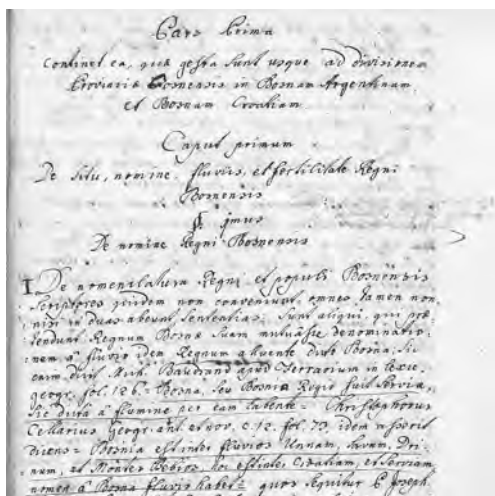 Pars Prima
Continet ea, quæ gesta sunt usque ad divisionem
Provinciæ Bosnensis in Bosnam Argentinam
et Bosnam Croatiam
Caput primum
De situ, nomine, fluviis, et fertilitate Regni
Bosnensis
§. 1mus
De nomine Regni Bosnensis
1. De nomenclatura Regni et populi Bosnensis
Scriptores quidem non conveniunt, omnes tamen non
nisi in duas abeunt sententias: sunt aliqui, qui præ
tendunt Regnum Bosnæ suam mutuasse denominatio
nem a fluvio idem Regnum alluente dicto Bosna. Sic
Baudrand apud Ferrarium in Lexic.
geogr. fol. 126. Bosna, seu Bosnia Regio fuit Serviæ,
sic dicta a flumine per eam labente = Christophorus
Cellarius Geogr. ant. et nov. c. 12. fol. 73. idem asserit
dicens = Bosnia est inter fluvios Unnam, Savum, Dri
num, et Montes hoc est inter Croatiam, et Serviam,
nomen a Bosna fluvio habet = quos sequitur P. Joseph.